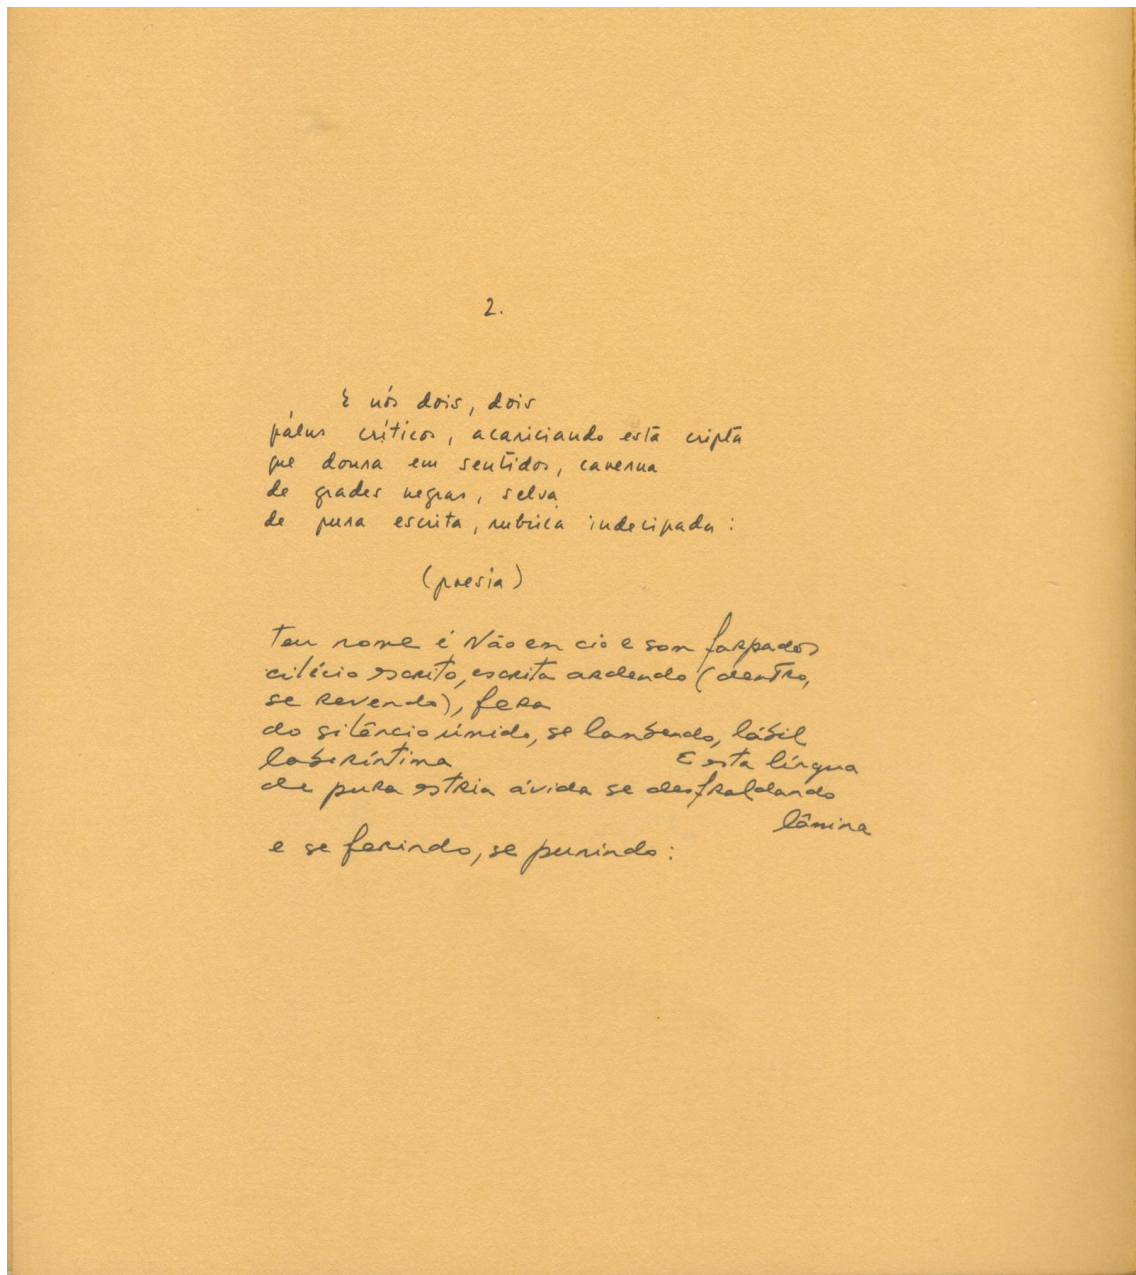 2.
E nós dois, dois
pálus críticos, acariciando esta cripta
que doura em sentidos, caverna
de grades negras, selva
de pura escrita, rubrica indecipada:
(poesia)
Teu nome é Não em cio e som farpados
cilício escrito, escrita ardendo (dentro,
se revendo), fera
do silêncio úmido, se lambendo, lábil
laberíntima E esta língua
de pura estria ávida se desfraldando
lâmina
e se ferindo, se punindo: